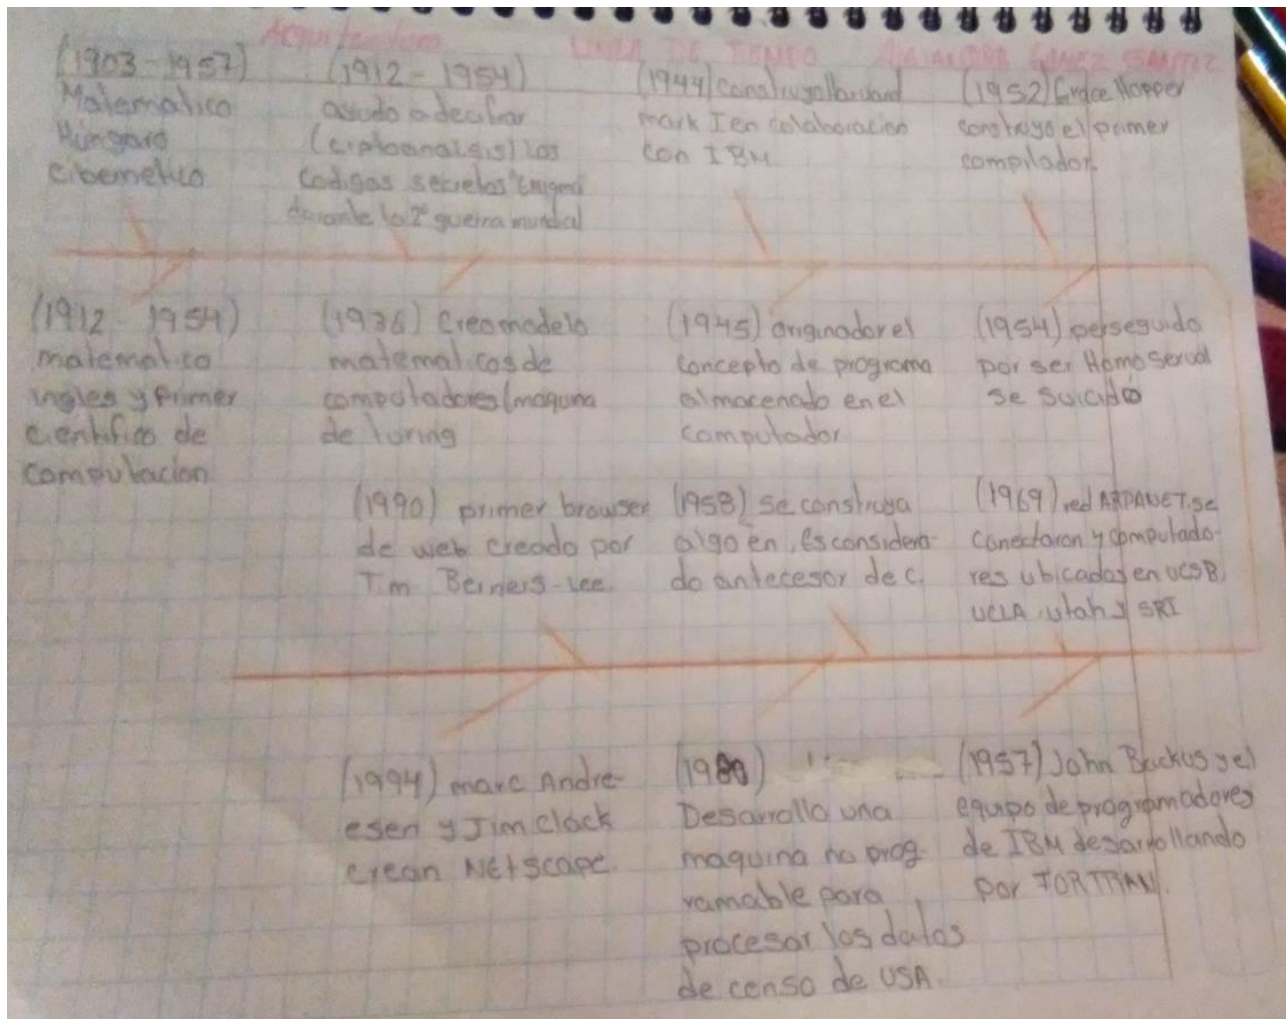 Arquitectura LINEA DE TIEMPO ALEJANDRA GOMEZ SANTIZ
(1903-1957)
Matematico
Húngaro
cibernetico
(1912-1954)
ayudo a decifrar
(criptoanalisis) los
codigos secretos "Enigma
durante la 2ª guerra mundial
(1944) construyo Harvard
mark I en colaboracion
con IBM
(1952) Grace Hopper
construyo el primer
compilador.
(1912-1954)
matematico
ingles y primer
cientifico de
computacion
(1936) Creo modelo
matematicos de
computadores (maquina
de turing
(1945) originador el
concepto de programa
almacenado en el
computador
(1954) perseguido
por ser Homosexual
se suicido
(1990) primer browser
de web creado por
Tim Berners-Lee.
(1958) se construya
algo en, es considera-
do antecesor de c.
(1969) red ARPANET, se
conectaron 4 computado-
res ubicados en UCSB,
UCLA, utah y SRI
(1994) marc Andre-
esen y Jim clack
crean NetScape.
(1980)
Desarrollo una
maquina no prog-
ramable para
procesar los datos
de censo de USA.
(1957) John Backus y el
equipo de programadores
de IBM desarrollando
por FORTRAN.